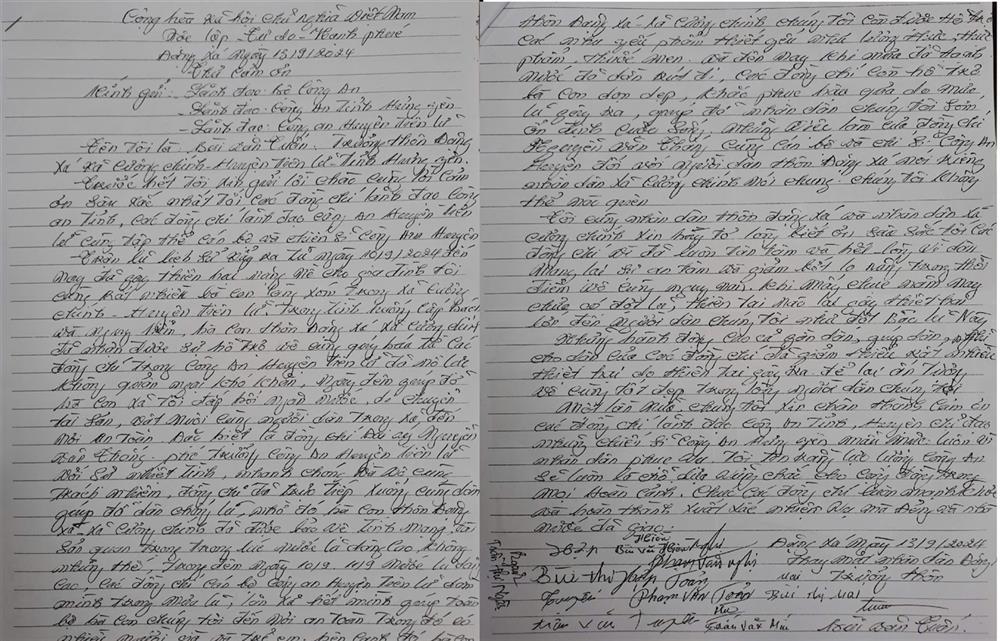 Cộng hòa xã hội chủ nghĩa Việt Nam
Độc lập - Tự do - Hạnh phúc
Đồng Xá Ngày 13/9/2024
Thư Cảm ơn
Kính gửi: - Lãnh đạo bộ Công An
- Lãnh đạo Công An Tỉnh Hưng Yên
- Lãnh đạo Công an Huyện Tiên Lữ
Tên tôi là Bùi Tuấn. Trưởng thôn Đồng
Xá xã Cương Chính - Huyện Tiên Lữ - Tỉnh Hưng Yên
Trước hết tôi xin gửi lời chào cùng lời Cảm
ơn sâu sắc nhất tới các đồng chí lãnh đạo Công
an Tỉnh, Các đồng chí lãnh đạo Công An Huyện Tiên
Lữ cùng tập thể Cán bộ và chiến sĩ Công An Huyện
lũ lịch sử xảy ra từ ngày 10/9/2024 đến
nay đã gây thiệt hại nặng nề cho gia đình tôi
cùng rất nhiều bà con làng xóm trong xã Cương
Chính - Huyện Tiên Lữ. Trong tình huống cấp bách
và nguy hiểm, bà Con thôn Đồng Xá xã Cương Chính
đã nhận được sự hỗ trợ vô cùng quý báu từ Các
đồng chí trong Công An Huyện Tiên Lữ đã nỗ lực
không quản ngại khó khăn, ngày đêm giúp đỡ
bà con xã tôi đắp bối ngăn nước, di chuyển
tài sản, vật nuôi cùng người dân trong xã đến
nơi an toàn. Đặc biệt là đồng chí Đại úy Nguyễn
Văn Thắng - phó trưởng Công An Huyện Tiên Lữ
Với sự nhiệt tình, nhanh chóng và vô cùng
trách nhiệm, đồng chí đã trực tiếp xuống cùng dân
giúp đỡ dân chống lũ, nhờ đó bà Con thôn Đồng
Xá xã Cương Chính đã được bảo vệ tính mạng và
sản quan trọng trong lúc nước lũ dâng cao, không
những thế, trong đêm ngày 10/9, nước lũ
Cao, Các đồng chí Cán bộ Công an Huyện Tiên Lữ dầm
mình trong nước lũ, hết mình giúp toàn
bộ bà Con chúng tôi đến nơi an toàn trong đó có
nhiều người già và trẻ em, bên cạnh đó bà con
thôn Đồng Xá xã Cương Chính chúng tôi còn được Hỗ trợ
Các nhu yếu phẩm thiết yếu như lương thực, thực
phẩm, thuốc men. Và đến nay khi mưa đã
nước đã dần rút đi, Các đồng chí Còn hỗ trợ
bà Con dọn dẹp, khắc phục hậu quả do mưa
lũ gây ra, giúp đỡ nhân dân chúng tôi sớm
ổn định cuộc sống, những việc làm của đồng chí
Nguyễn Văn Thắng cùng Cán bộ và chiến sĩ Công An
Huyện đối với người dân thôn Đồng Xá nói riêng
nhân dân xã Cương Chính nói chung chúng tôi không
thể nào quên
Tôi cùng nhân dân thôn Đồng Xá và nhân dân xã
Cương Chính xin bày tỏ lòng biết ơn sâu sắc tới Các
đồng chí vì đã luôn tận tâm và hết lòng vì dân
mang lại sự an tâm và giảm bớt lo lắng trong thời
điểm vô cùng nguy nan. Khi mấy chục năm nay
chưa có đợt lũ, thiên tai nào lại gây thiệt hại
lớn đến người dân chúng tôi như đợt bão lũ này
Những hành động cao cả gần dân, giúp dân,
cho dân của Các đồng chí đã giảm thiểu rất nhiều
thiệt hại do thiên tai gây ra để lại ấn tượng
vô cùng tốt đẹp trong lòng người dân chúng tôi
Một lần nữa chúng tôi xin chân thành Cảm ơn
các đồng chí lãnh đạo Công An Tỉnh, Huyện chỉ đạo
những chiến sĩ Công An Hưng Yên mẫu mực luôn vì
nhân dân phục vụ. Tôi tin rằng lực lượng Công An
sẽ luôn là chỗ dựa vững chắc cho cộng đồng trong
mọi hoàn cảnh. Chúc Các đồng chí luôn mạnh khỏe
và hoàn thành xuất sắc nhiệm vụ mà Đảng và nhà
nước đã giao.
Đồng Xá Ngày 13/9/2024
Thay mặt nhân dân Đồng Xá
Trưởng thôn
Phạm Văn Nghi
Bùi Thị
Phạm Văn Toản
Bùi Thị Mai
Trần Văn Mùi
Bùi Tuấn